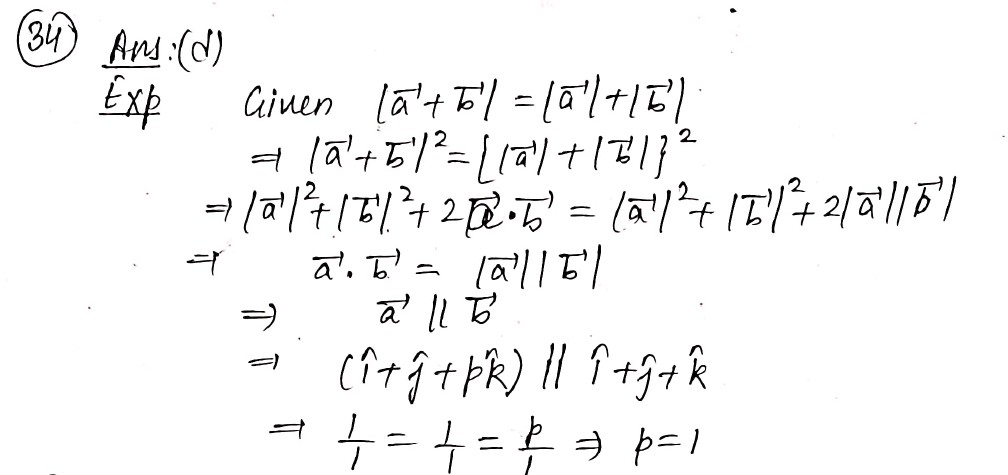 34 Ans:(d)
Exp Given |a⃗ + b⃗| = |a⃗| + |b⃗|
⇒ |a⃗ + b⃗|² = {|a⃗| + |b⃗|}²
⇒ |a⃗|² + |b⃗|² + 2 a⃗·b⃗ = |a⃗|² + |b⃗|² + 2|a⃗||b⃗|
⇒ a⃗·b⃗ = |a⃗||b⃗|
⇒ a⃗ || b⃗
⇒ (î + ĵ + pk̂) || î + ĵ + k̂
⇒ 1/1 = 1/1 = p/1 ⇒ p = 1